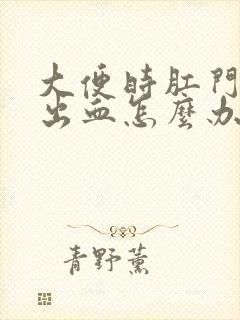 大便時肛門
出血怎麼办
青野薫